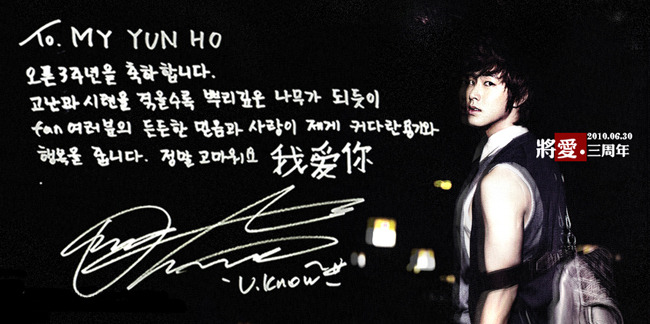 To. MY YUN HO
오픈 3주년을 축하합니다.
고난과 시련을 겪을수록 뿌리깊은 나무가 되듯이
fan 여러분의 든든한 믿음과 사랑이 제게 커다란 용기와
행복을 줍니다. 정말 고마워요 我爱你
-U.Know
2010.06.30
將愛·三周年